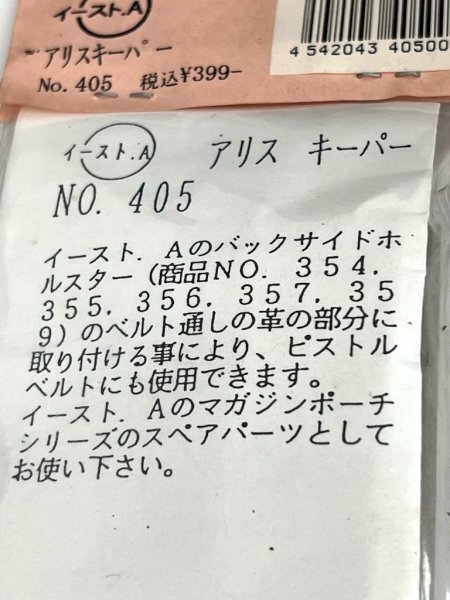 イースト.A
アリスキーパー
No. 405 税込¥399-
4 542043 40500
イースト.A アリス キーパー
NO. 405
イースト.Aのバックサイドホ
ルスター(商品NO. 354.
355. 356. 357. 35
9)のベルト通しの革の部分に
取り付ける事により、ピストル
ベルトにも使用できます。
イースト.Aのマガジンポーチ
シリーズのスペアパーツとして
お使い下さい。